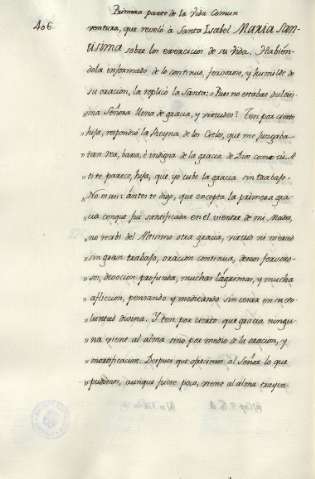 Primera parte de la Vida Comun
406
ventura, que reveló à Santa Isabel Maria San-
tisima sobre los exercicios de su Vida. Habien-
dola informado de lo continuo, fervoroso, y humilde de
su oracion, la replicó la Santa: Pues no estabas dulcisi-
ma Señora llena de gracia, y virtudes? Ten por cierto
hija, respondió la Reyna de los Cielos, que me juzgaba
tan vil, baxa, è indigna de la gracia de Dios como tú.
ti te parece, hija, que yo tube la gracia sin trabajo.
No fue asi: antes te digo, que excepto la primera gra-
cia conque fui santificada en el vientre de mi Madre,
no recibi del Altisimo otra gracia, virtud ni
sin gran trabajo, oracion continua, deseo fervoro-
so, devocion profunda, muchas lagrimas, y mucha
afliccion, pensando y meditando sin cesar en la
luntad divina. Y ten por cierto que gracia ningu-
na viene al alma sino por medio de la oracion, y
mortificacion. Despues que ofrecemos al Señor lo que
podemos, aunque fuere poco, viene al alma